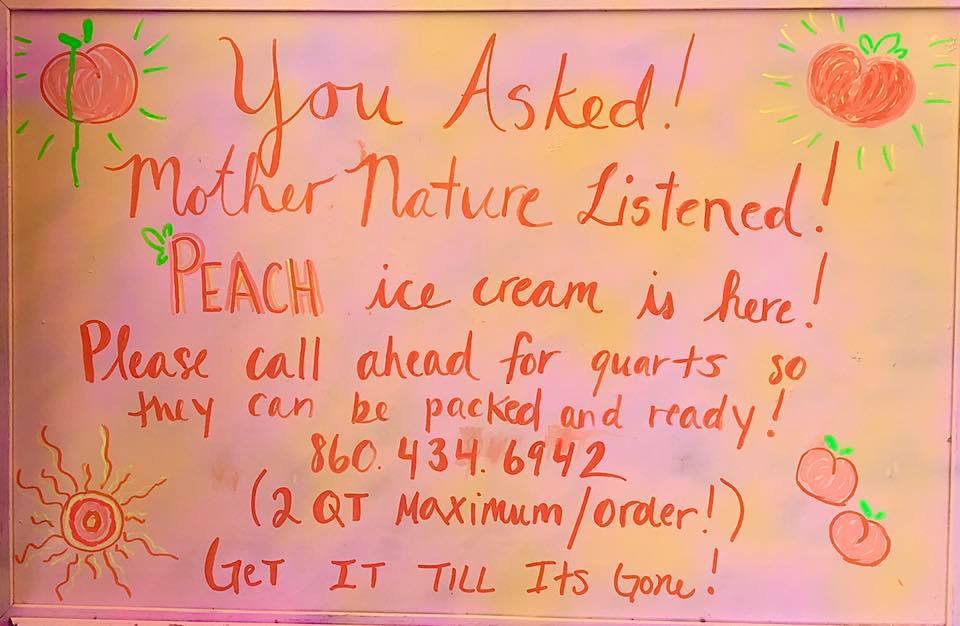 You Asked!
Mother Nature Listened!
PEACH ice cream is here!
Please call ahead for quarts so
they can be packed and ready!
860.434.6942
(2 QT Maximum/order!)
Get IT TILL Its Gone!